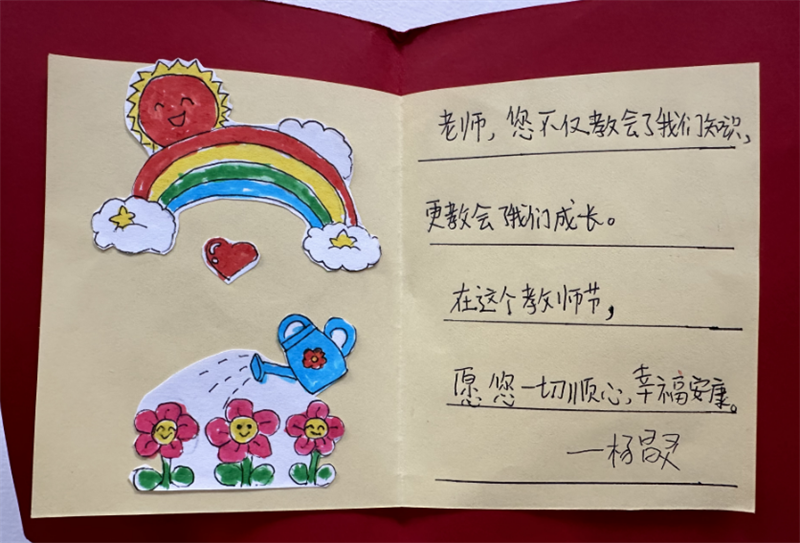 老师，您不仅教会了我们知识，
更教会了我们成长。
在这个教师节，
愿您一切顺心，幸福安康。
—杨